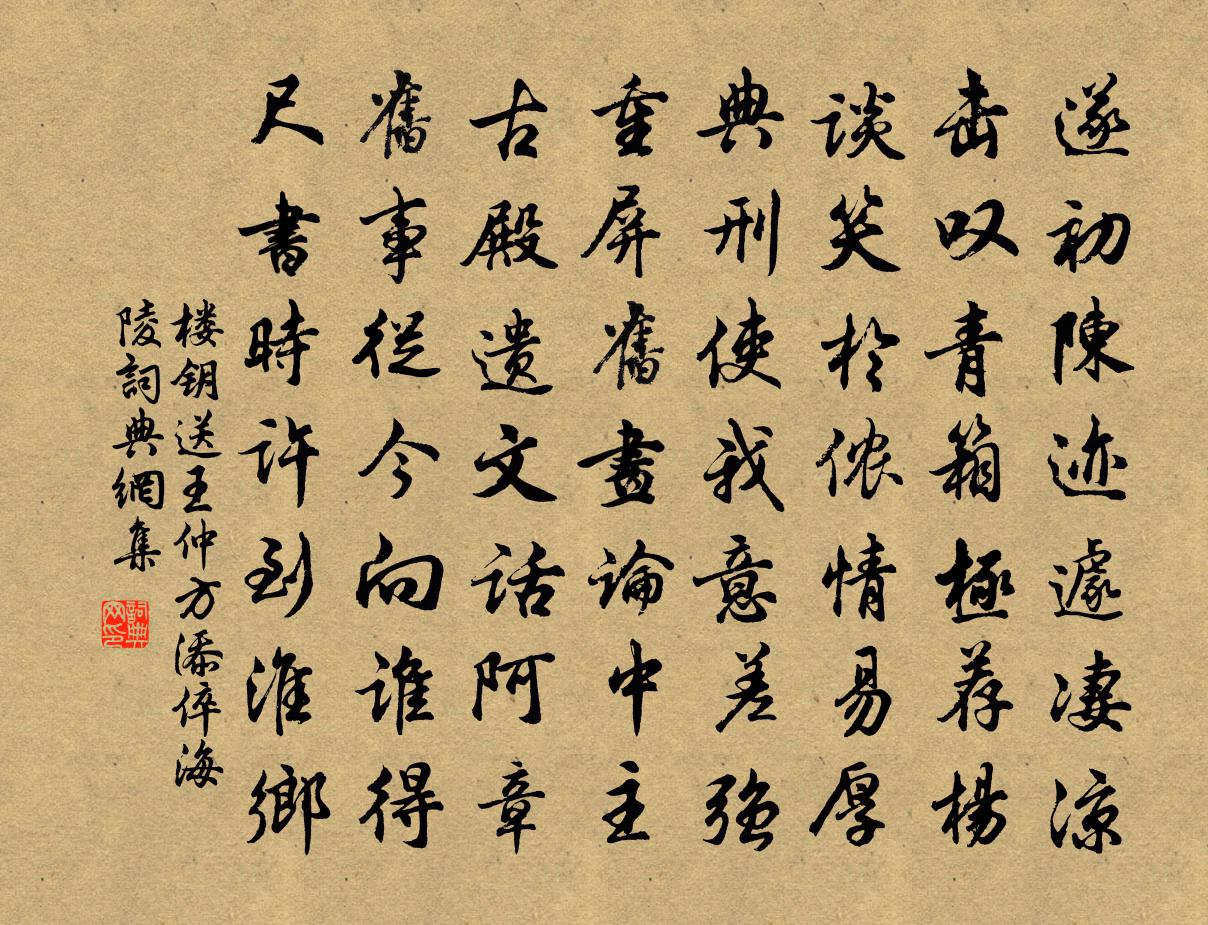 遂初陳迹遽凄涼
击叹青箱極荐楊
谈笑於侬情易厚
典刑使我意差強
重屏舊畫論中主
古殿遗文話阿章
舊事從今向谁得
尺書時許到淮鄉
楼钥送王仲方添倅海
陵詞典網集
詞典
网印